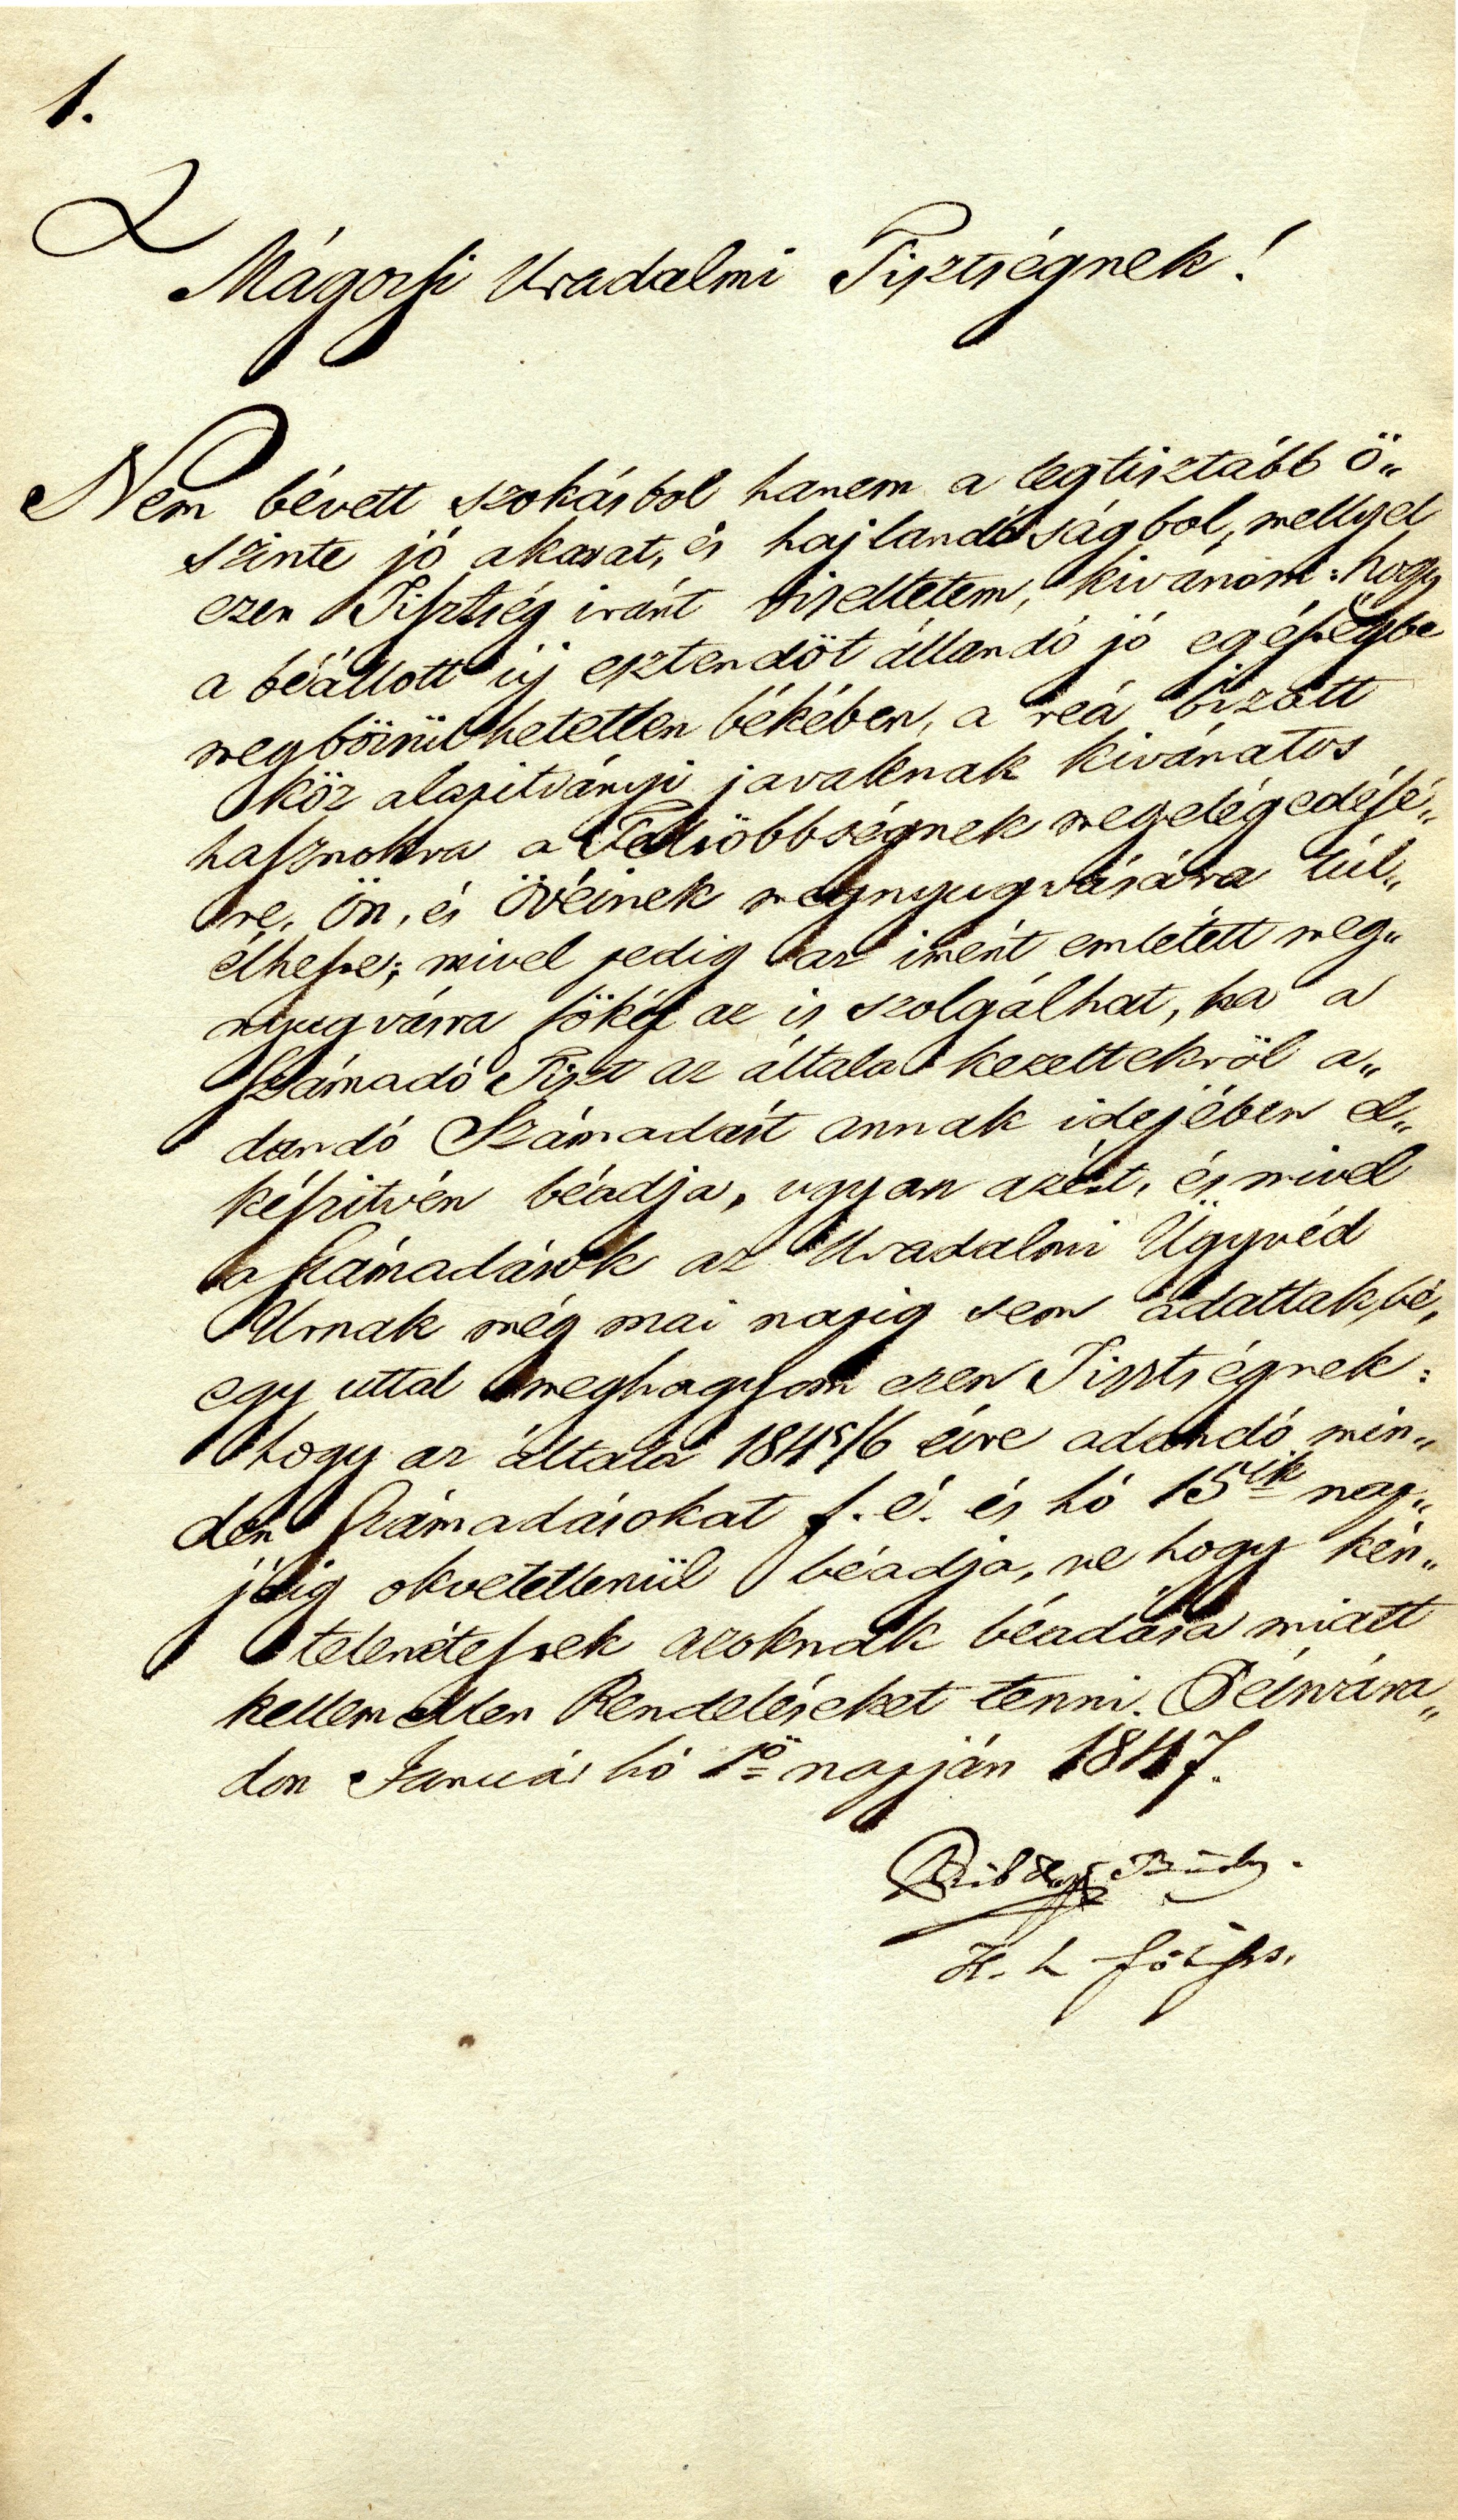 1.
Mágochi Uradalmi Tisztségnek!
Nem bévett szokásbol hanem a legtisztább ö„
szinte jó akarat, és hajlandóságbol, mellyel
ezen Tisztség iránt viseltetem, kivánom: hogy
a béállott új esztendöt állandó jó egésségbe
megböszülhetetlen békében, a reá bizott
köz alapitványi javaknak kivánatos
hasznokra a Felsöbbségnek megelégedésé„
re, Ön, és Övéinek megnyugvására túl„
élhesse; mivel pedig az imént emlétett meg„
nyugvásra fökép az is szolgálhat, ha a
Számadó Tiszt az általa kezeltekröl a„
dandó Számadást annak idejében el„
készitvén béadja, ugyan azért, és mivel
a Számadások az Uradalmi Ügyvéd
Urnak még mai napig sem adattak bé,
egy uttal meghagyom ezen Tisztségnek:
hogy az általa 1845/6 évre adandó min„
den Számadásokat f. é. és hó 15ik nap„
jáig okvetetlenül béadja, ne hogy kén„
telenétessek azoknak béadása miatt
kellemetlen Rendeléseket tenni. Pécsvára„
don Január hó 1ö napján 1847.